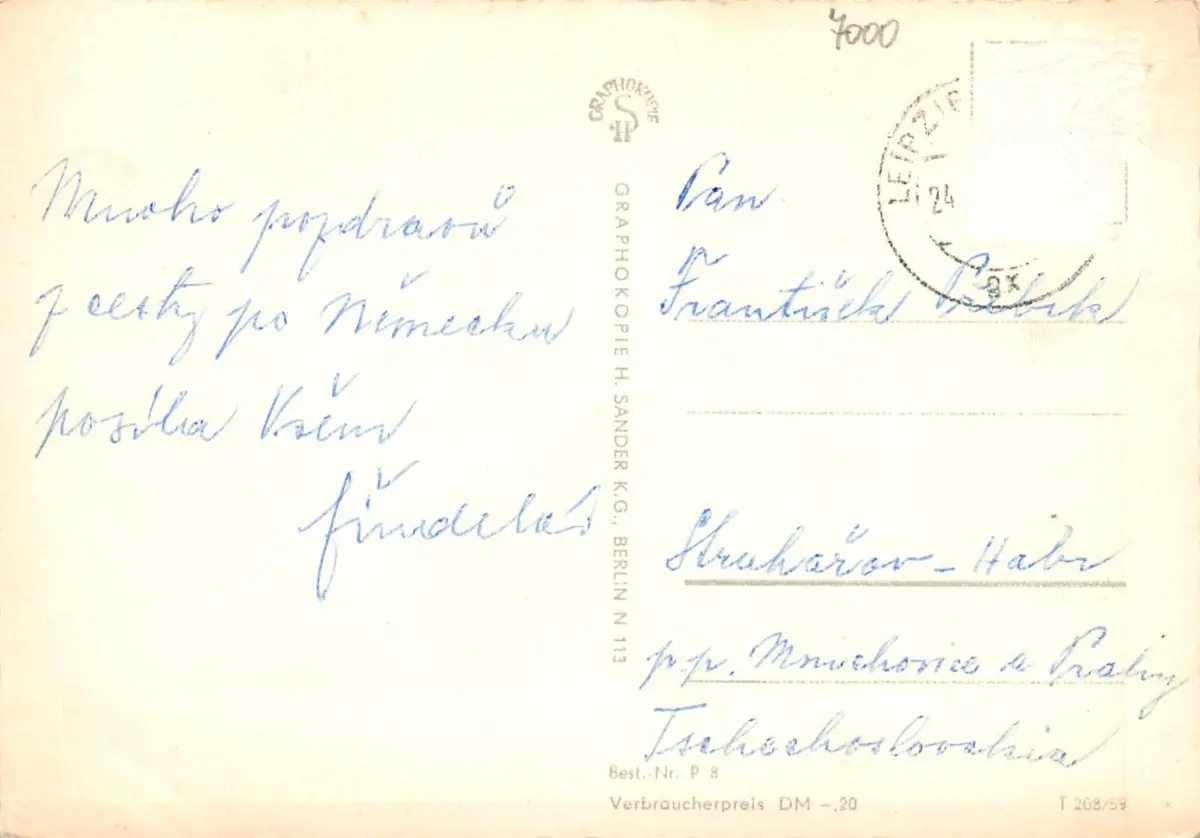 7000
GRAPHOKOPIE
H S
LEIPZI
24
gx
Mnoho pozdravů
z cesty po Německu
posílá Všem
GRAPHOKOPIE H. SANDER K.G., BERLIN N 113
Pan
František
Struhařov - Habr
pp. Mnichovice u Prahy
Tschechoslovakia
Best.-Nr. P 8
Verbraucherpreis DM -,20
T 208/59